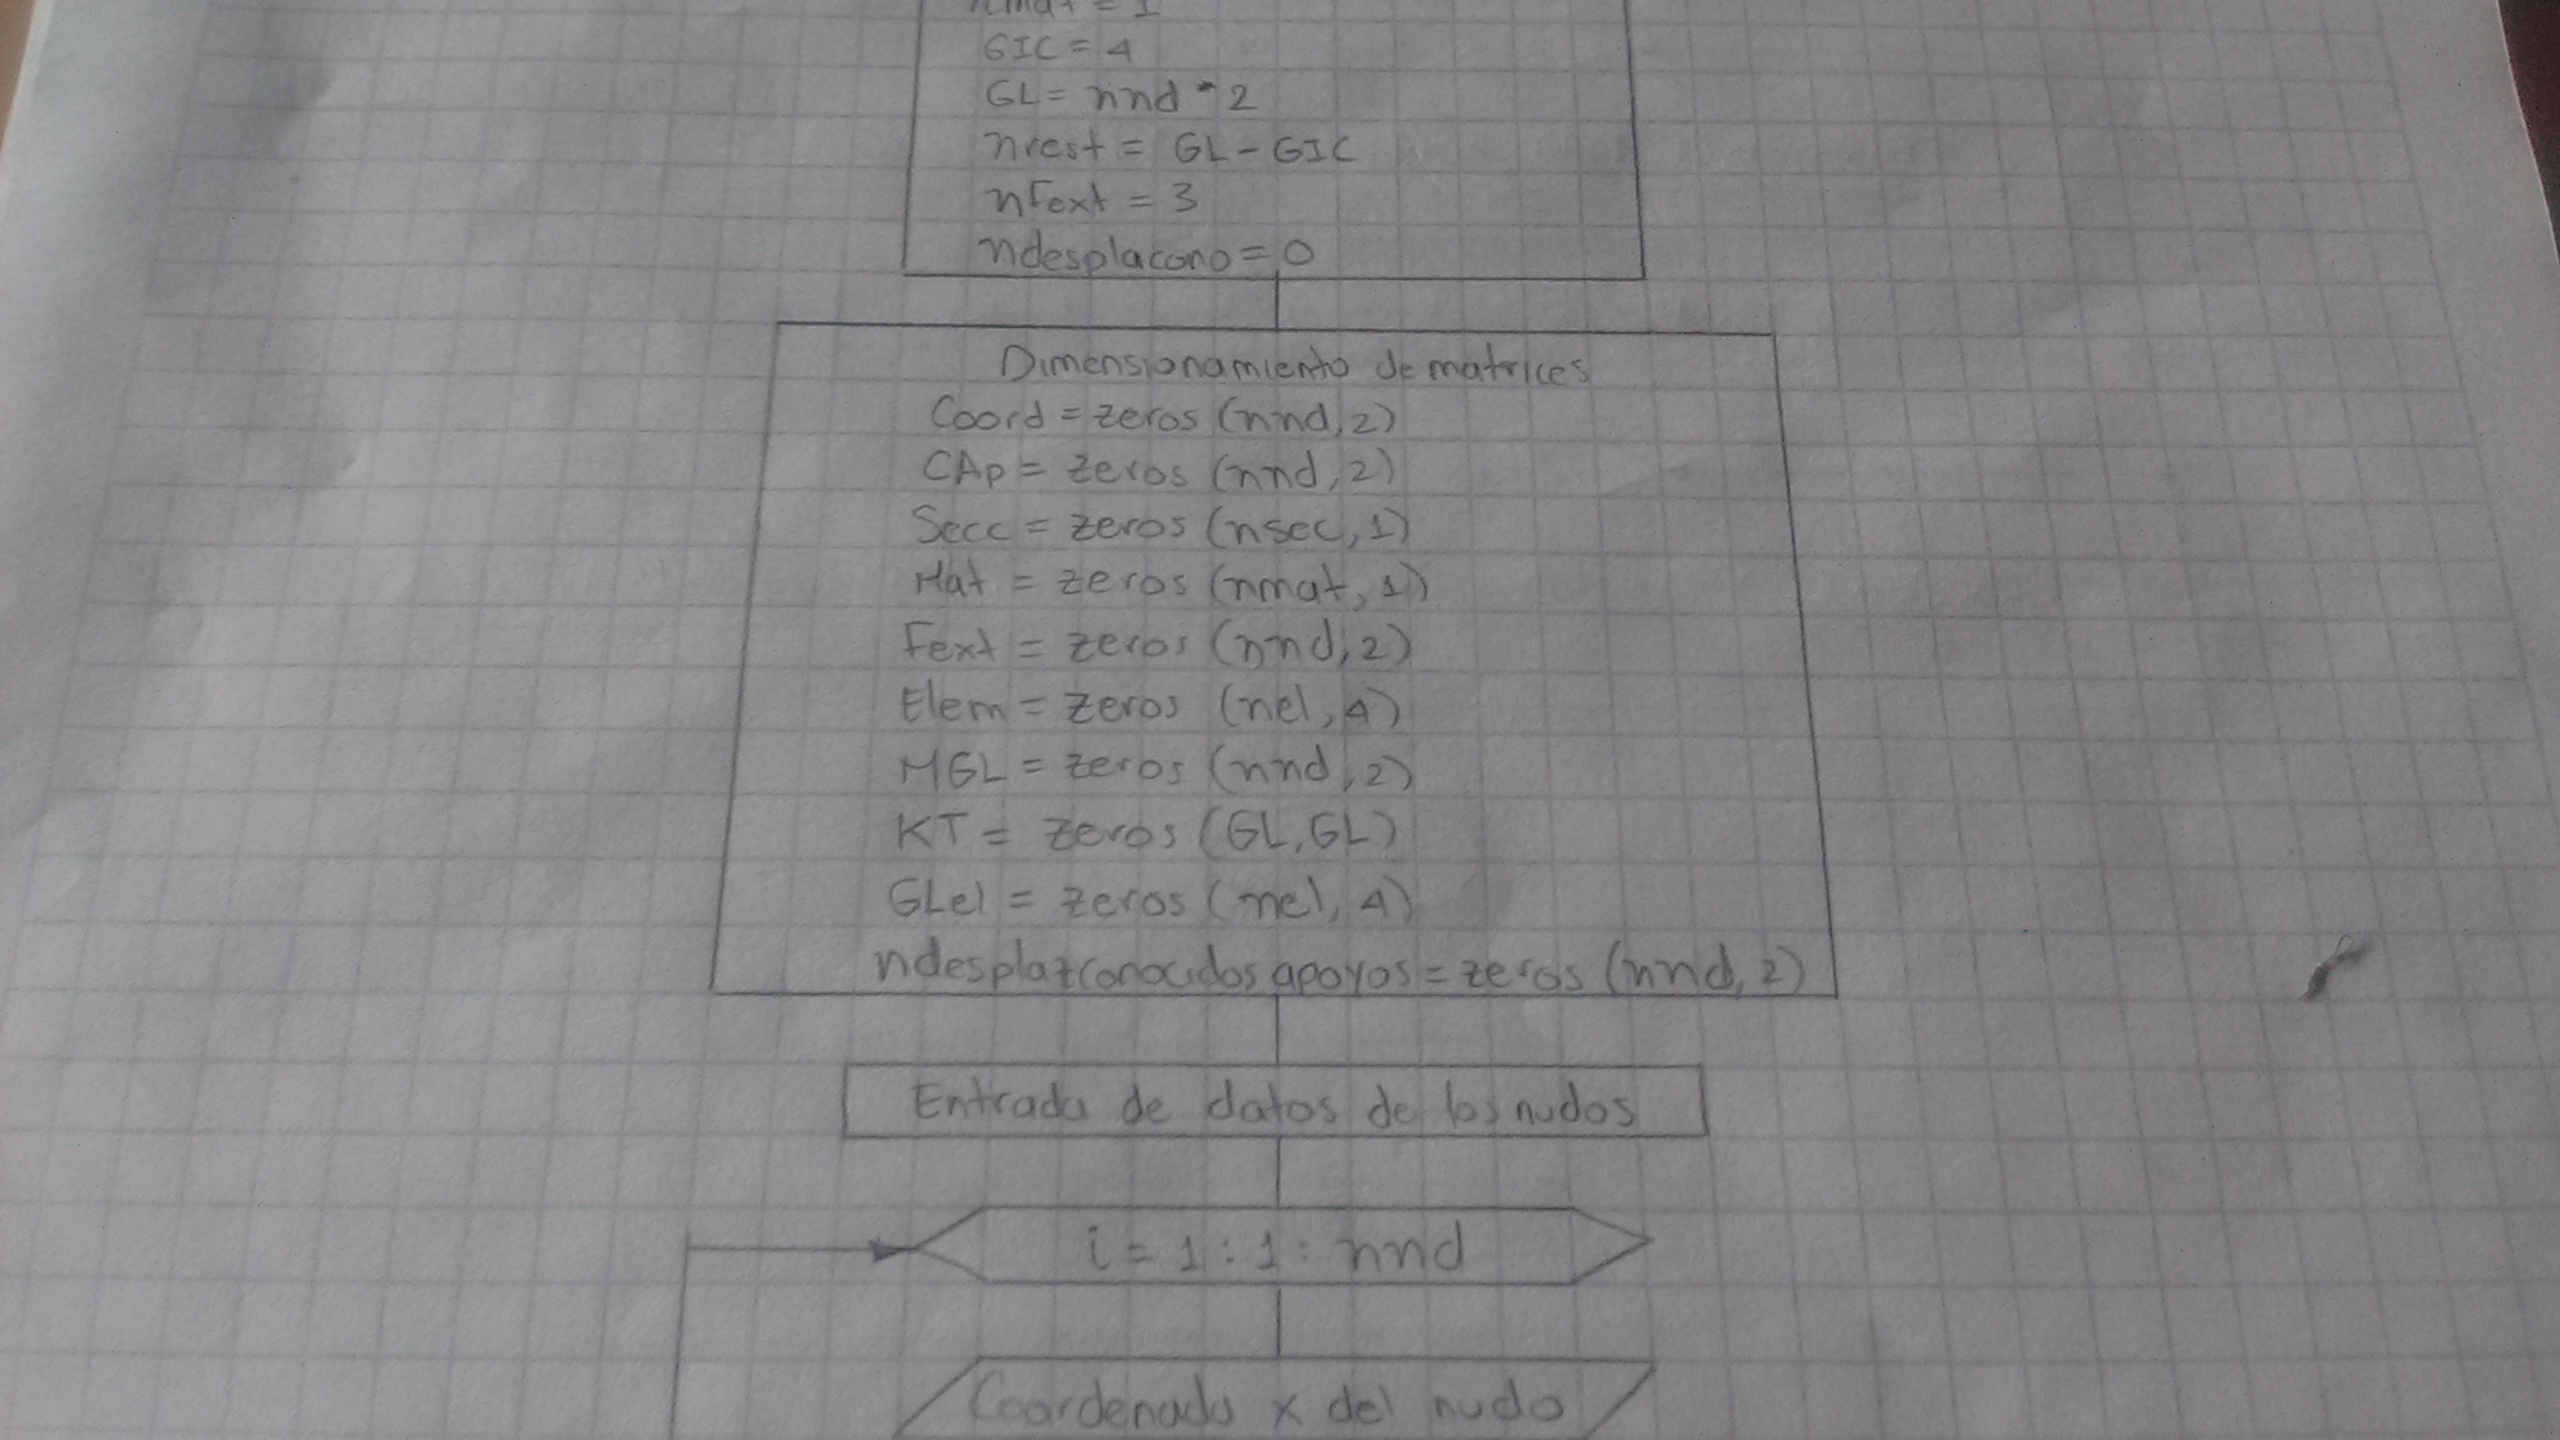 nmat = 1
GIC = 4
GL = nnd * 2
nrest = GL - GIC
nFext = 3
ndesplacono = 0
Dimensionamiento de matrices
Coord = zeros (nnd, 2)
CAp = zeros (nnd, 2)
Secc = zeros (nsec, 1)
Mat = zeros (nmat, 1)
Fext = zeros (nnd, 2)
Elem = zeros (nel, 4)
MGL = zeros (nnd, 2)
KT = zeros (GL, GL)
GLel = zeros (nel, 4)
ndesplazconocidos apoyos = zeros (nnd, 2)
Entrada de datos de los nudos
i = 1 : 1 : nnd
Coordenada x del nudo